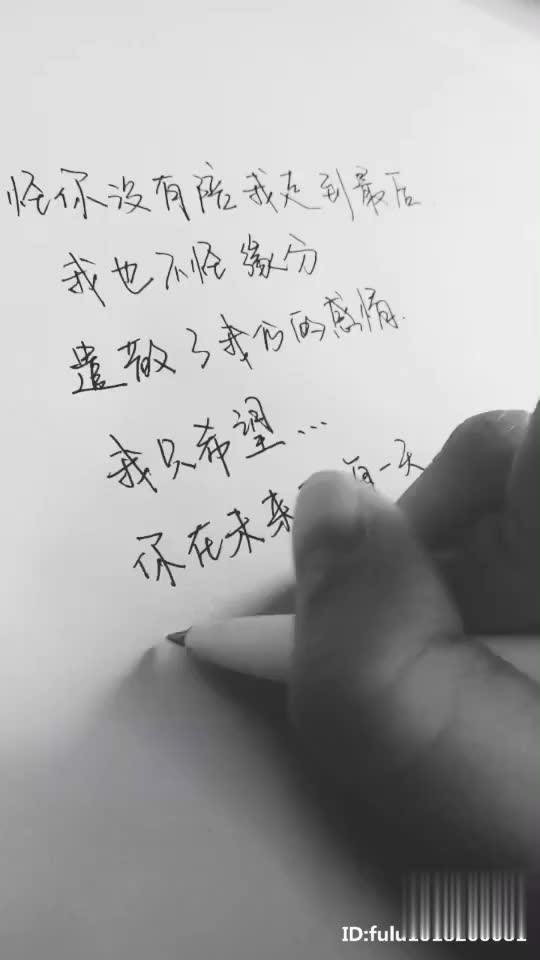 怪你没有陪我走到最后
我也不怪缘分
遣散了我们的感情.
我只希望...
你在未来 有一天